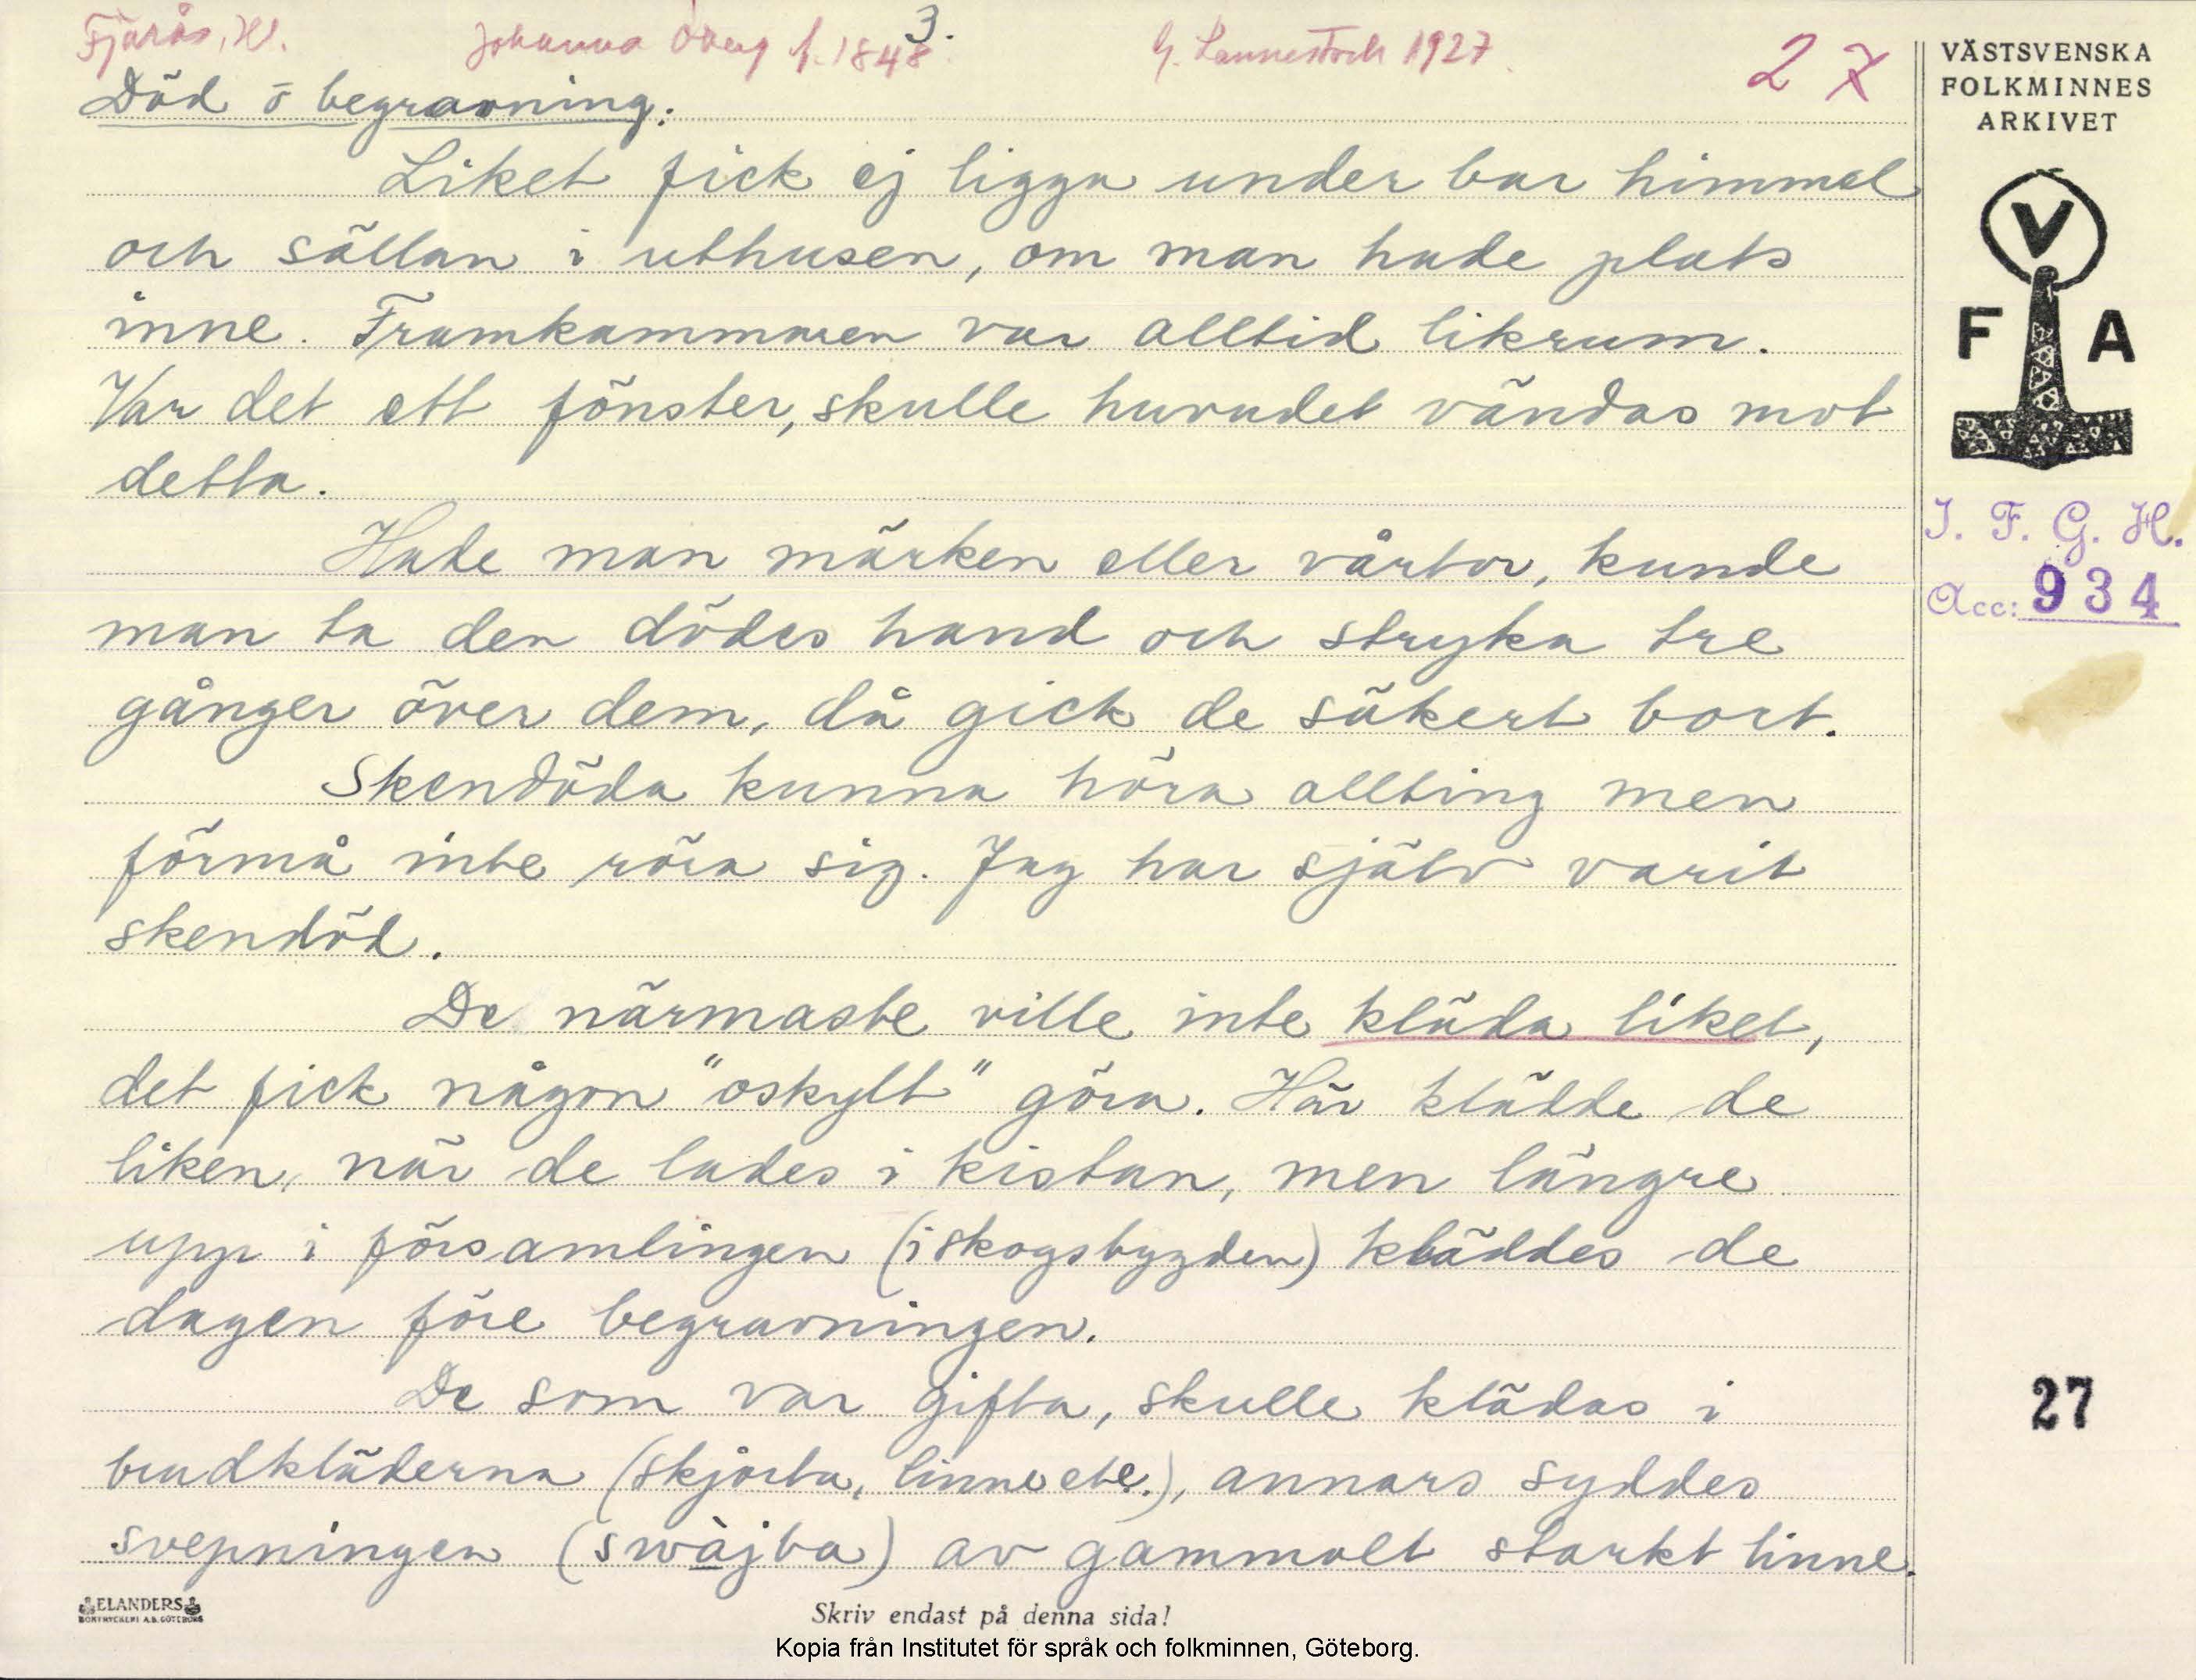 3.
Fjärås, Hl. Johanna Öberg f. 1848. G. Lannestock 1927. 27
Död o begravning.
Liket fick ej ligga under bar himmel
och sällan i uthusen, om man hade plats
inne. Framkammaren var alltid likrum.
Var det ett fönster, skulle huvudet vändas mot
detta.
Hade man märken eller vårtor, kunde
man ta den dödes hand och stryka tre
gånger över dem, då gick de säkert bort.
Skendöda kunna höra allting men
förmå inte röra sig. Jag har själv varit
skendöd.
De närmaste ville inte kläda liket,
det fick någon "oskylt" göra. Här klädde de
liken, när de lades i kistan, men längre
upp i församlingen (i skogsbygden) kläddes de
dagen före begravningen.
De som var gifta, skulle klädas i
brudkläderna (skjorta, linne etc.), annars syddes
svepningen (swàjba) av gammalt starkt linne.
VÄSTSVENSKA
FOLKMINNES
ARKIVET
V
F A
I. F. G. H.
Acc: 934
27
ELANDERS
BOKTRYCKERI A.B. GÖTEBORG
Skriv endast på denna sida!
Kopia från Institutet för språk och folkminnen, Göteborg.